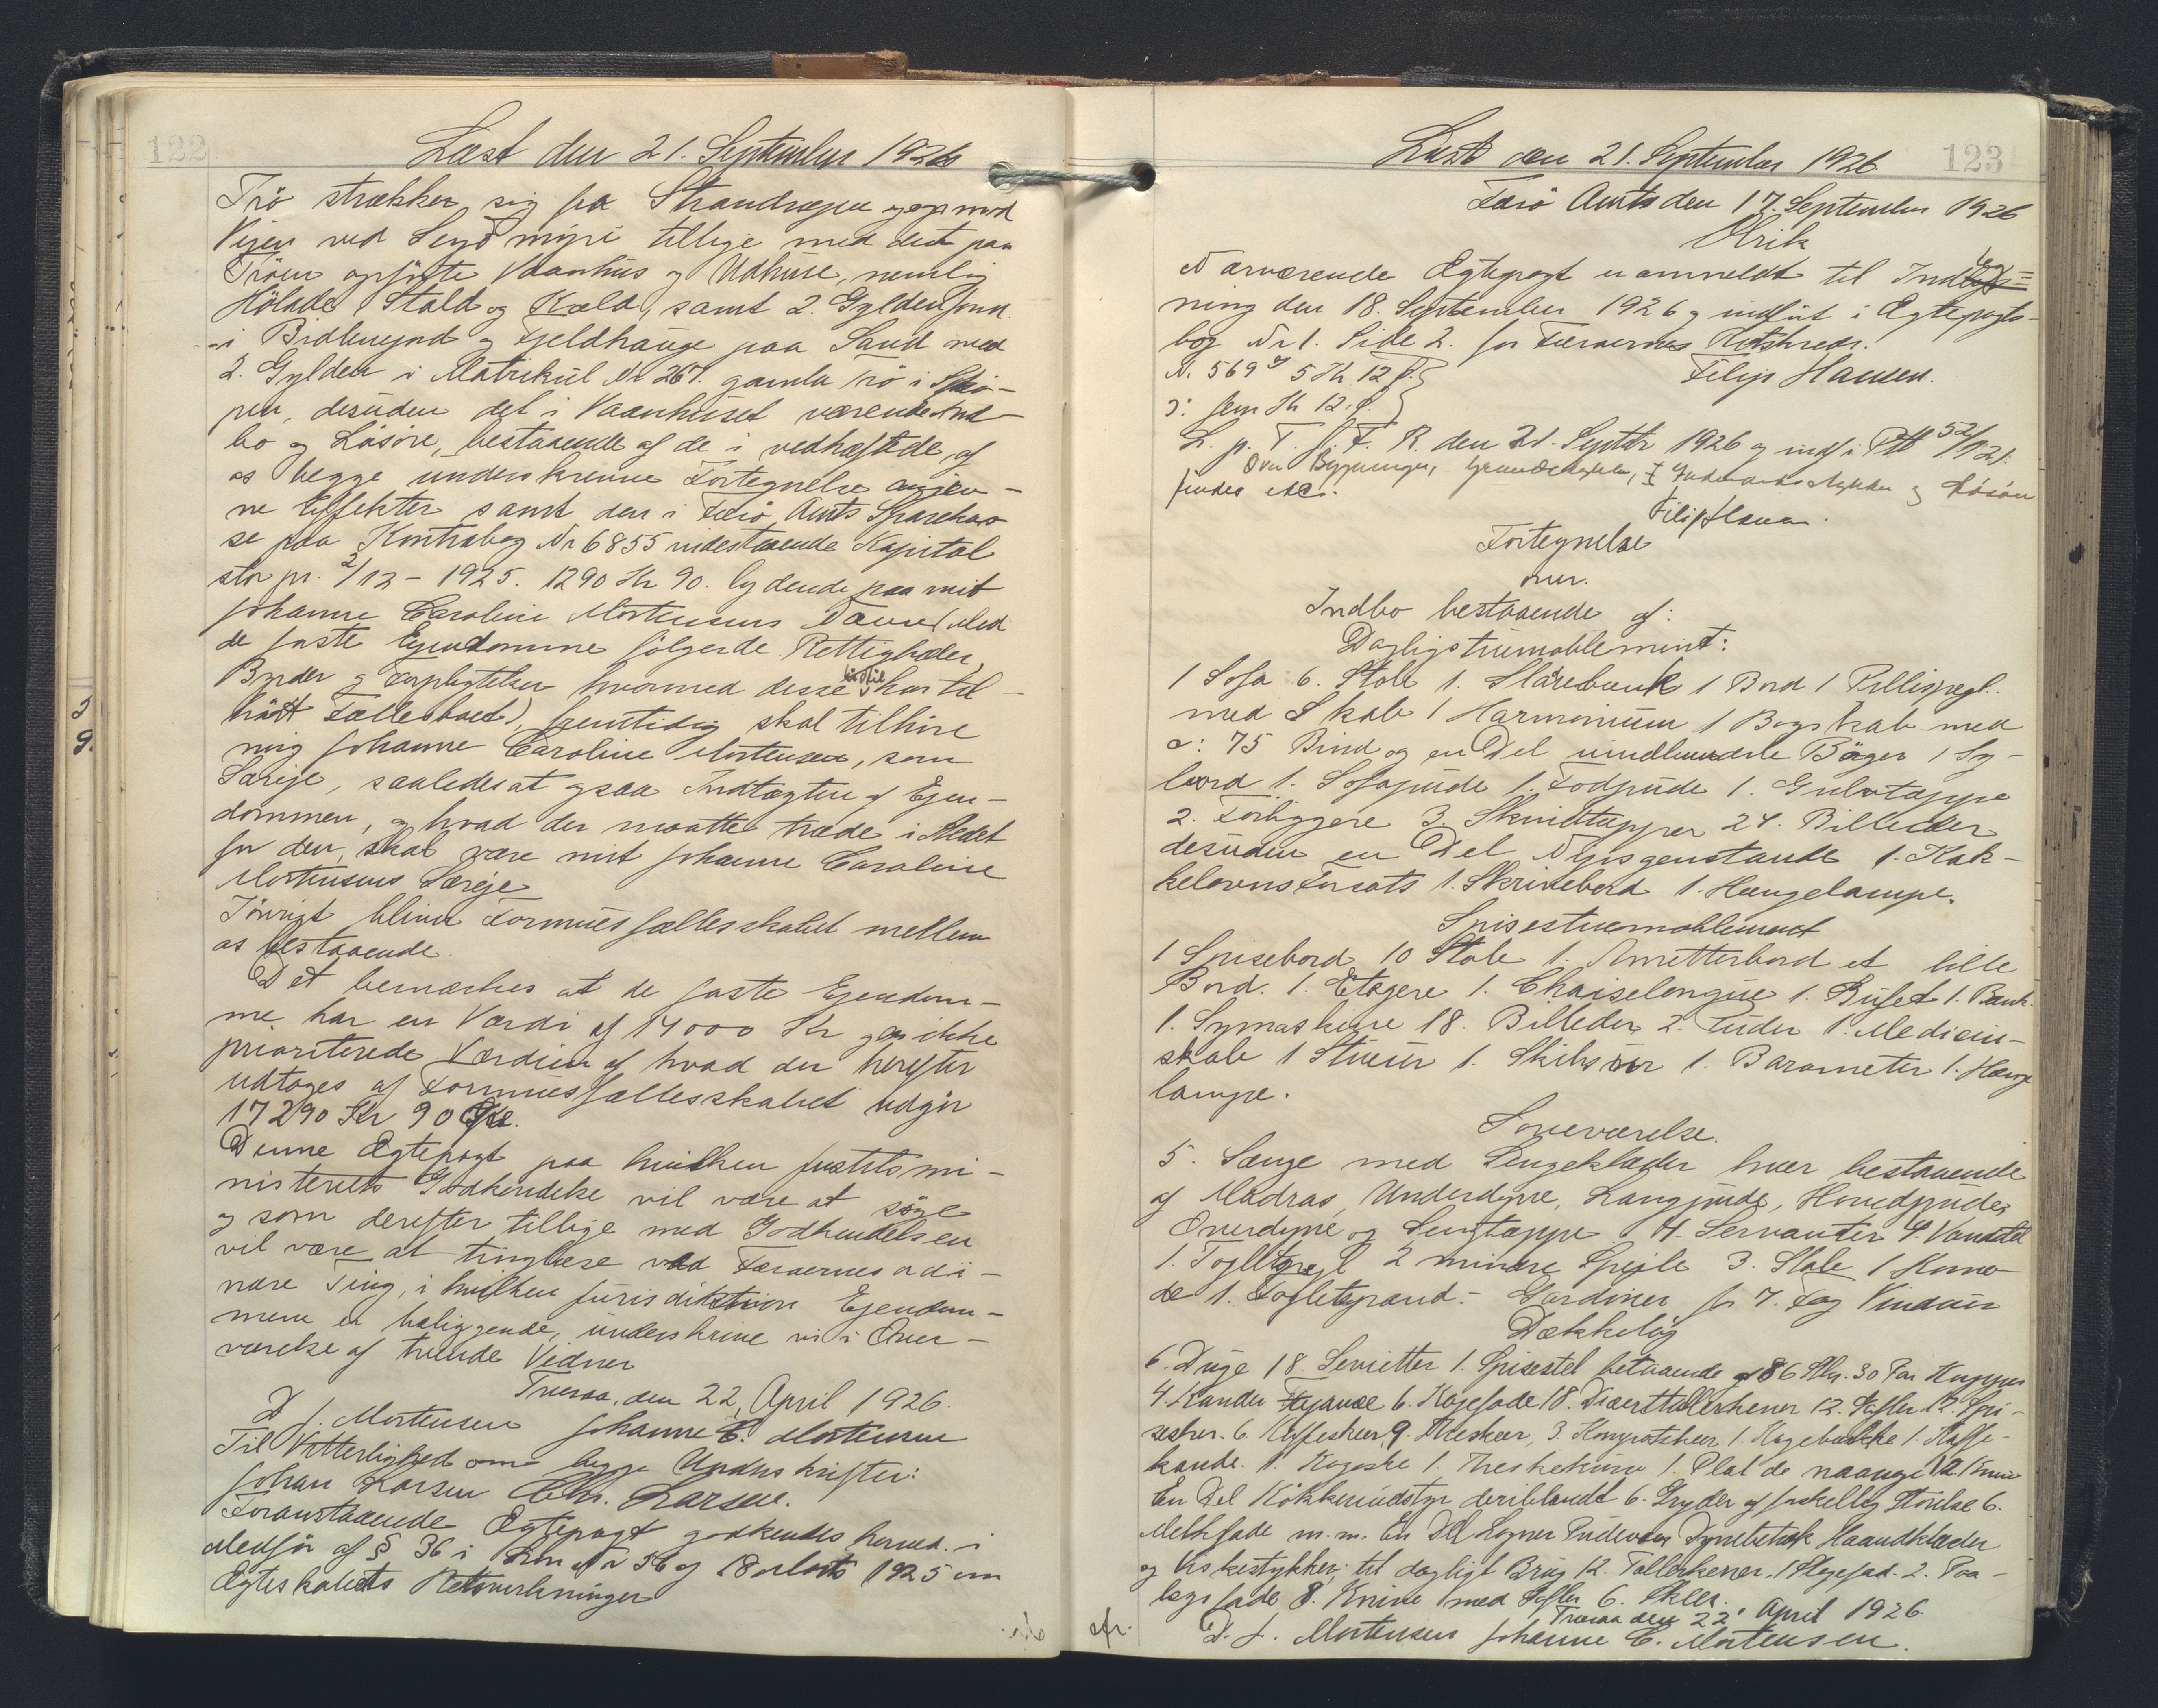 122
Læst den 21. September 1926
Trö strækker sig fra Strandvejen og op mod
Vejen ved Seyðmýri tillige med det paa
Tröen opförte Vaanhus og Udhuse, nemlig
Hölade Stald og Kæld, samt 2. Gylden
i Bidlengard og Fjeldhauge paa Sand med
2. Gylden i Matrikul Nr 267. gamla trö i Skö-
pen, desuden det i Vaanhuset værende Ind-
bo og Lösöre, bestaaende af de i vedhæftede, af
os begge underskrevne Fortegnelse angiv-
ne Effekter samt den i Færö Amts Sparekas
se paa Kontrabog Nr 6855 indestaaende Kapital
stor pr. 2/12 - 1925. 1290 Kr 90. lydende paa mit
Johanne Caroline Mortensens Navn (Med
de faste Ejendomme fölgende Rettigheder,
Byrder og Forpligtelser hvormed disse hidtil har til-
hört Fællesboet), fremtidig skal tilhöre
mig Johanne Caroline Mortensen, som
Særeje, saaledes at ogsaa Indtægten af Ejen-
dommen, og hvad der maatte træde i Stedet
for den, skal være mit Johanne Caroline
Mortensens Særeje
Iövrigt bliver Formuesfællesskabet mellem
os bestaaende.
Det bemærkes at de faste Ejendom-
me har en Værdi af 14000 Kr og er ikke
prioriterede Værdien af hvad der herefter
udtages af Formuesfællesskabet udgör
17290 Kr 90 Øre.
Denne Ægtepagt paa hvilken Justitsmi-
nisteriets Godkendelse vil være at söge
og som derefter tillige med Godkendelsen
vil være at tinglæse ved Færøernes ordi-
nære Ting, i hvilken Jurisdiktion Ejendom-
mene er beliggende, underskrive vi i Over-
værelse af tvende Vidner
Tveraa, den 22, April 1926.
D. J. Mortensen Johanne C. Mortensen
Til Vitterlighed om begge Underskrifter:
Johan Larsen Chr. Larsen.
Foranstaaende Ægtepagt godkendes herved i
Medför af § 36 i Lov Nr 56 af 18 Marts 1925 om
Ægteskabets Retsvirkninger
123
Læst den 21. September 1926
Færö Amt den 17. September 1926
Olrik
Nærværende Ægtepagt er anmeldt til Indteg=
ning den 18. September 1926 og indfört i Ægtepagts-
bog Nr 1. Side 2. for Færøernes Retskreds.
N. 569 5 Kr 12
ɔ: fem Kr 12.
Filip Hansen.
L. p. T. f. F. R. den 21. Septbr 1926 og indf. i Ptb 52/121.
Over Bygninger,
findes etc.
Filip Hansen.
Fortegnelse
over.
Indbo bestaaende af:
Dagligstuemoblement:
1 Sofa 6. Stole 1. Slåebænk 1 Bord 1 Pillespejl
med Skab 1 Harmonium 1 Bogskab med
c: 75 Bind og en Del uindbundne Böger 1 Sy-
bord 1. Sofapude 1. Fodpude 1. Gulvtæppe
2. Forliggere 3. Skindtæpper 24. Billeder
desuden en Del Nipsgenstande 1. Kak-
kelovnsforsats 1. Skrivebord 1. Hængelampe.
Spisestuemoblement
1 Spisebord 10 Stole 1. Anretterbord et lille
Bord. 1. Etagere 1. Chaiselongue 1. Bufet 1. Bænk.
1. Symaskine 18. Billeder 2. Puder 1. Medicin-
skab 1 Stueur 1. Skibsur 1. Barometer 1. Hænge
lampe.
Soveværelse.
5. Senge med Sengeklæder hver bestaaende
af Madras, Underdyne, Langpude, Hovedpude,
Overdyne og Sengtæppe 4. Servanter 4. Vandstel
1. Toiletspejl 2 mindre Spejle 3. Stole 1 Komo-
de 1. Toiletspand.- Gardiner for 7. Fag Vinduer
Dækketöj
6. Duge 18. Servietter 1. Spisestel bestaaende af 86 Stkr. 30 Par Kopper
4. Kander Fajance 6. Kagefade 18. Desserttallerkener 12. Gafler 12. Spi-
seskeer. 6. Kaffeskeer, 9. Theskeer, 3. Kompotskeer 1. Kagebakke 1. Kaffe-
kande. 1. Kageske 1. Theskekurv 1. Plat de 12. Knive
En Del Kökkenudstyr deriblandt 6. Gryder af forskellig Störelse 6.
Melkfade m. m. En Del Lagner Pudevaar Dynebetræk Haandklæder
og Viskestykker, til dagligt Brug 12. Tallerkener, 1 Stegefad. 2. Paa-
lægsfade, 8. Knive med Gafler 6. Skeer.
Tveraa den 22' April 1926
D. J. Mortensen Johanne C. Mortensen.
afr.